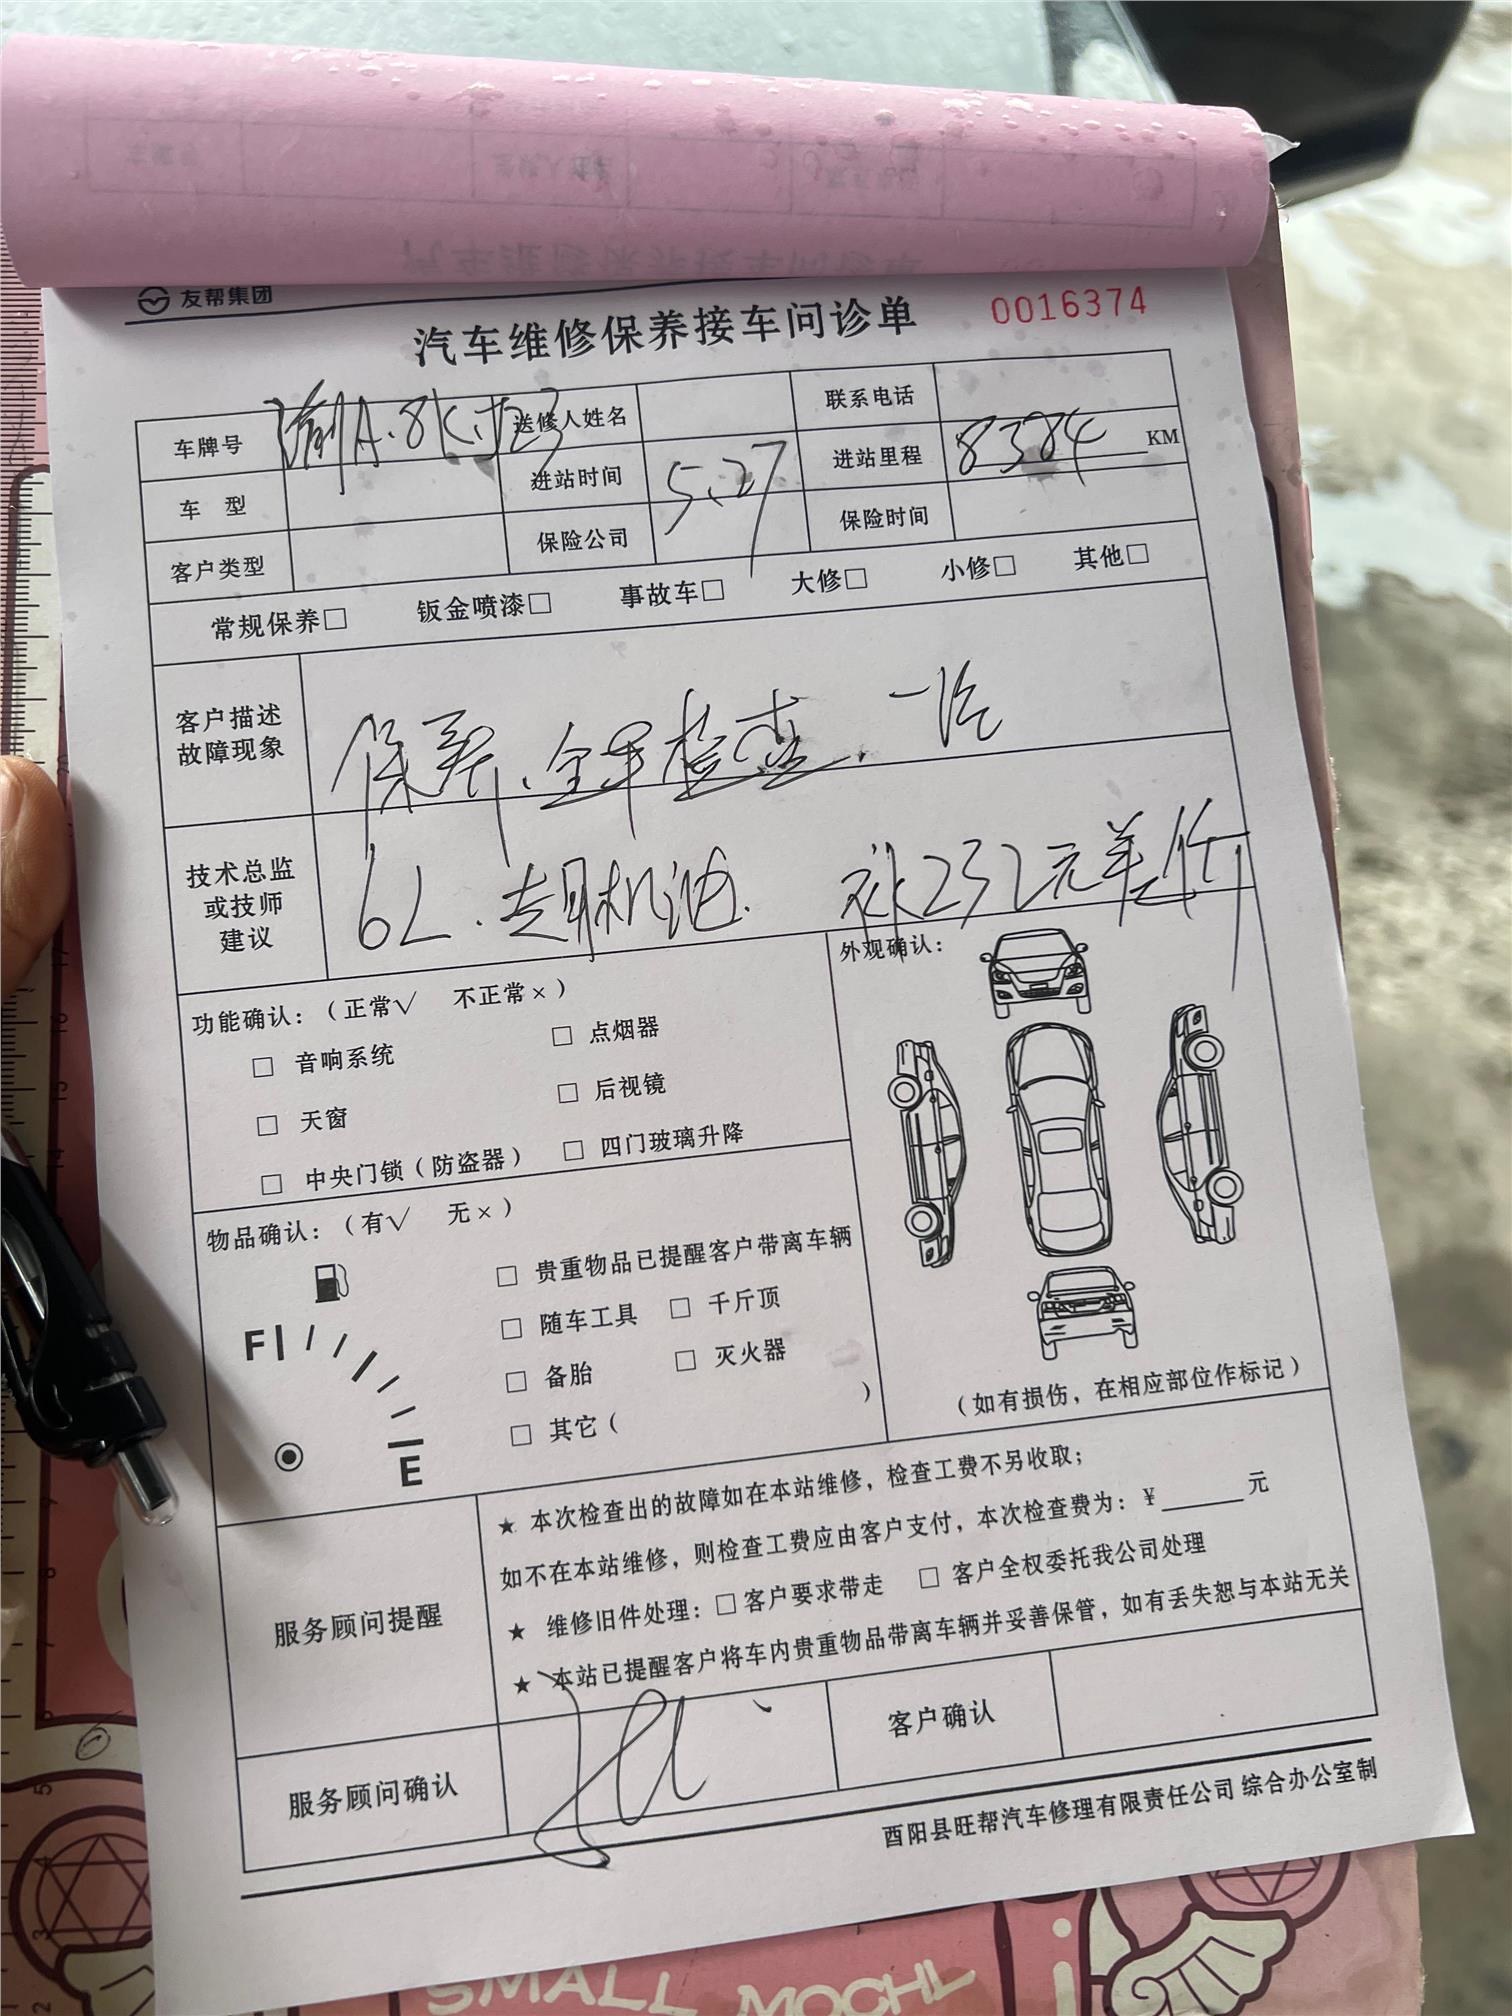 友帮集团
汽车维修保养接车问诊单
0016374
车牌号 渝A·8K 送修人姓名 联系电话
车 型 进站时间 5.27 进站里程 8384 KM
客户类型 保险公司 保险时间
常规保养□ 钣金喷漆□ 事故车□ 大修□ 小修□ 其他□
客户描述
故障现象
保养、全车检查.
技术总监
或技师
建议
6L.专用机油. 补232元差价
功能确认:(正常√ 不正常×)
□ 音响系统 □ 点烟器
□ 天窗 □ 后视镜
□ 中央门锁(防盗器) □ 四门玻璃升降
外观确认:
(如有损伤,在相应部位作标记)
物品确认:(有√ 无×)
F
E
□ 贵重物品已提醒客户带离车辆
□ 随车工具 □ 千斤顶
□ 备胎 □ 灭火器
□ 其它( )
服务顾问提醒
★ 本次检查出的故障如在本站维修,检查工费不另收取;
如不在本站维修,则检查工费应由客户支付,本次检查费为:¥______元
★ 维修旧件处理:□客户要求带走 □ 客户全权委托我公司处理
★ 本站已提醒客户将车内贵重物品带离车辆并妥善保管,如有丢失恕与本站无关
服务顾问确认 客户确认
酉阳县旺帮汽车修理有限责任公司 综合办公室制
SMALL MOCHI